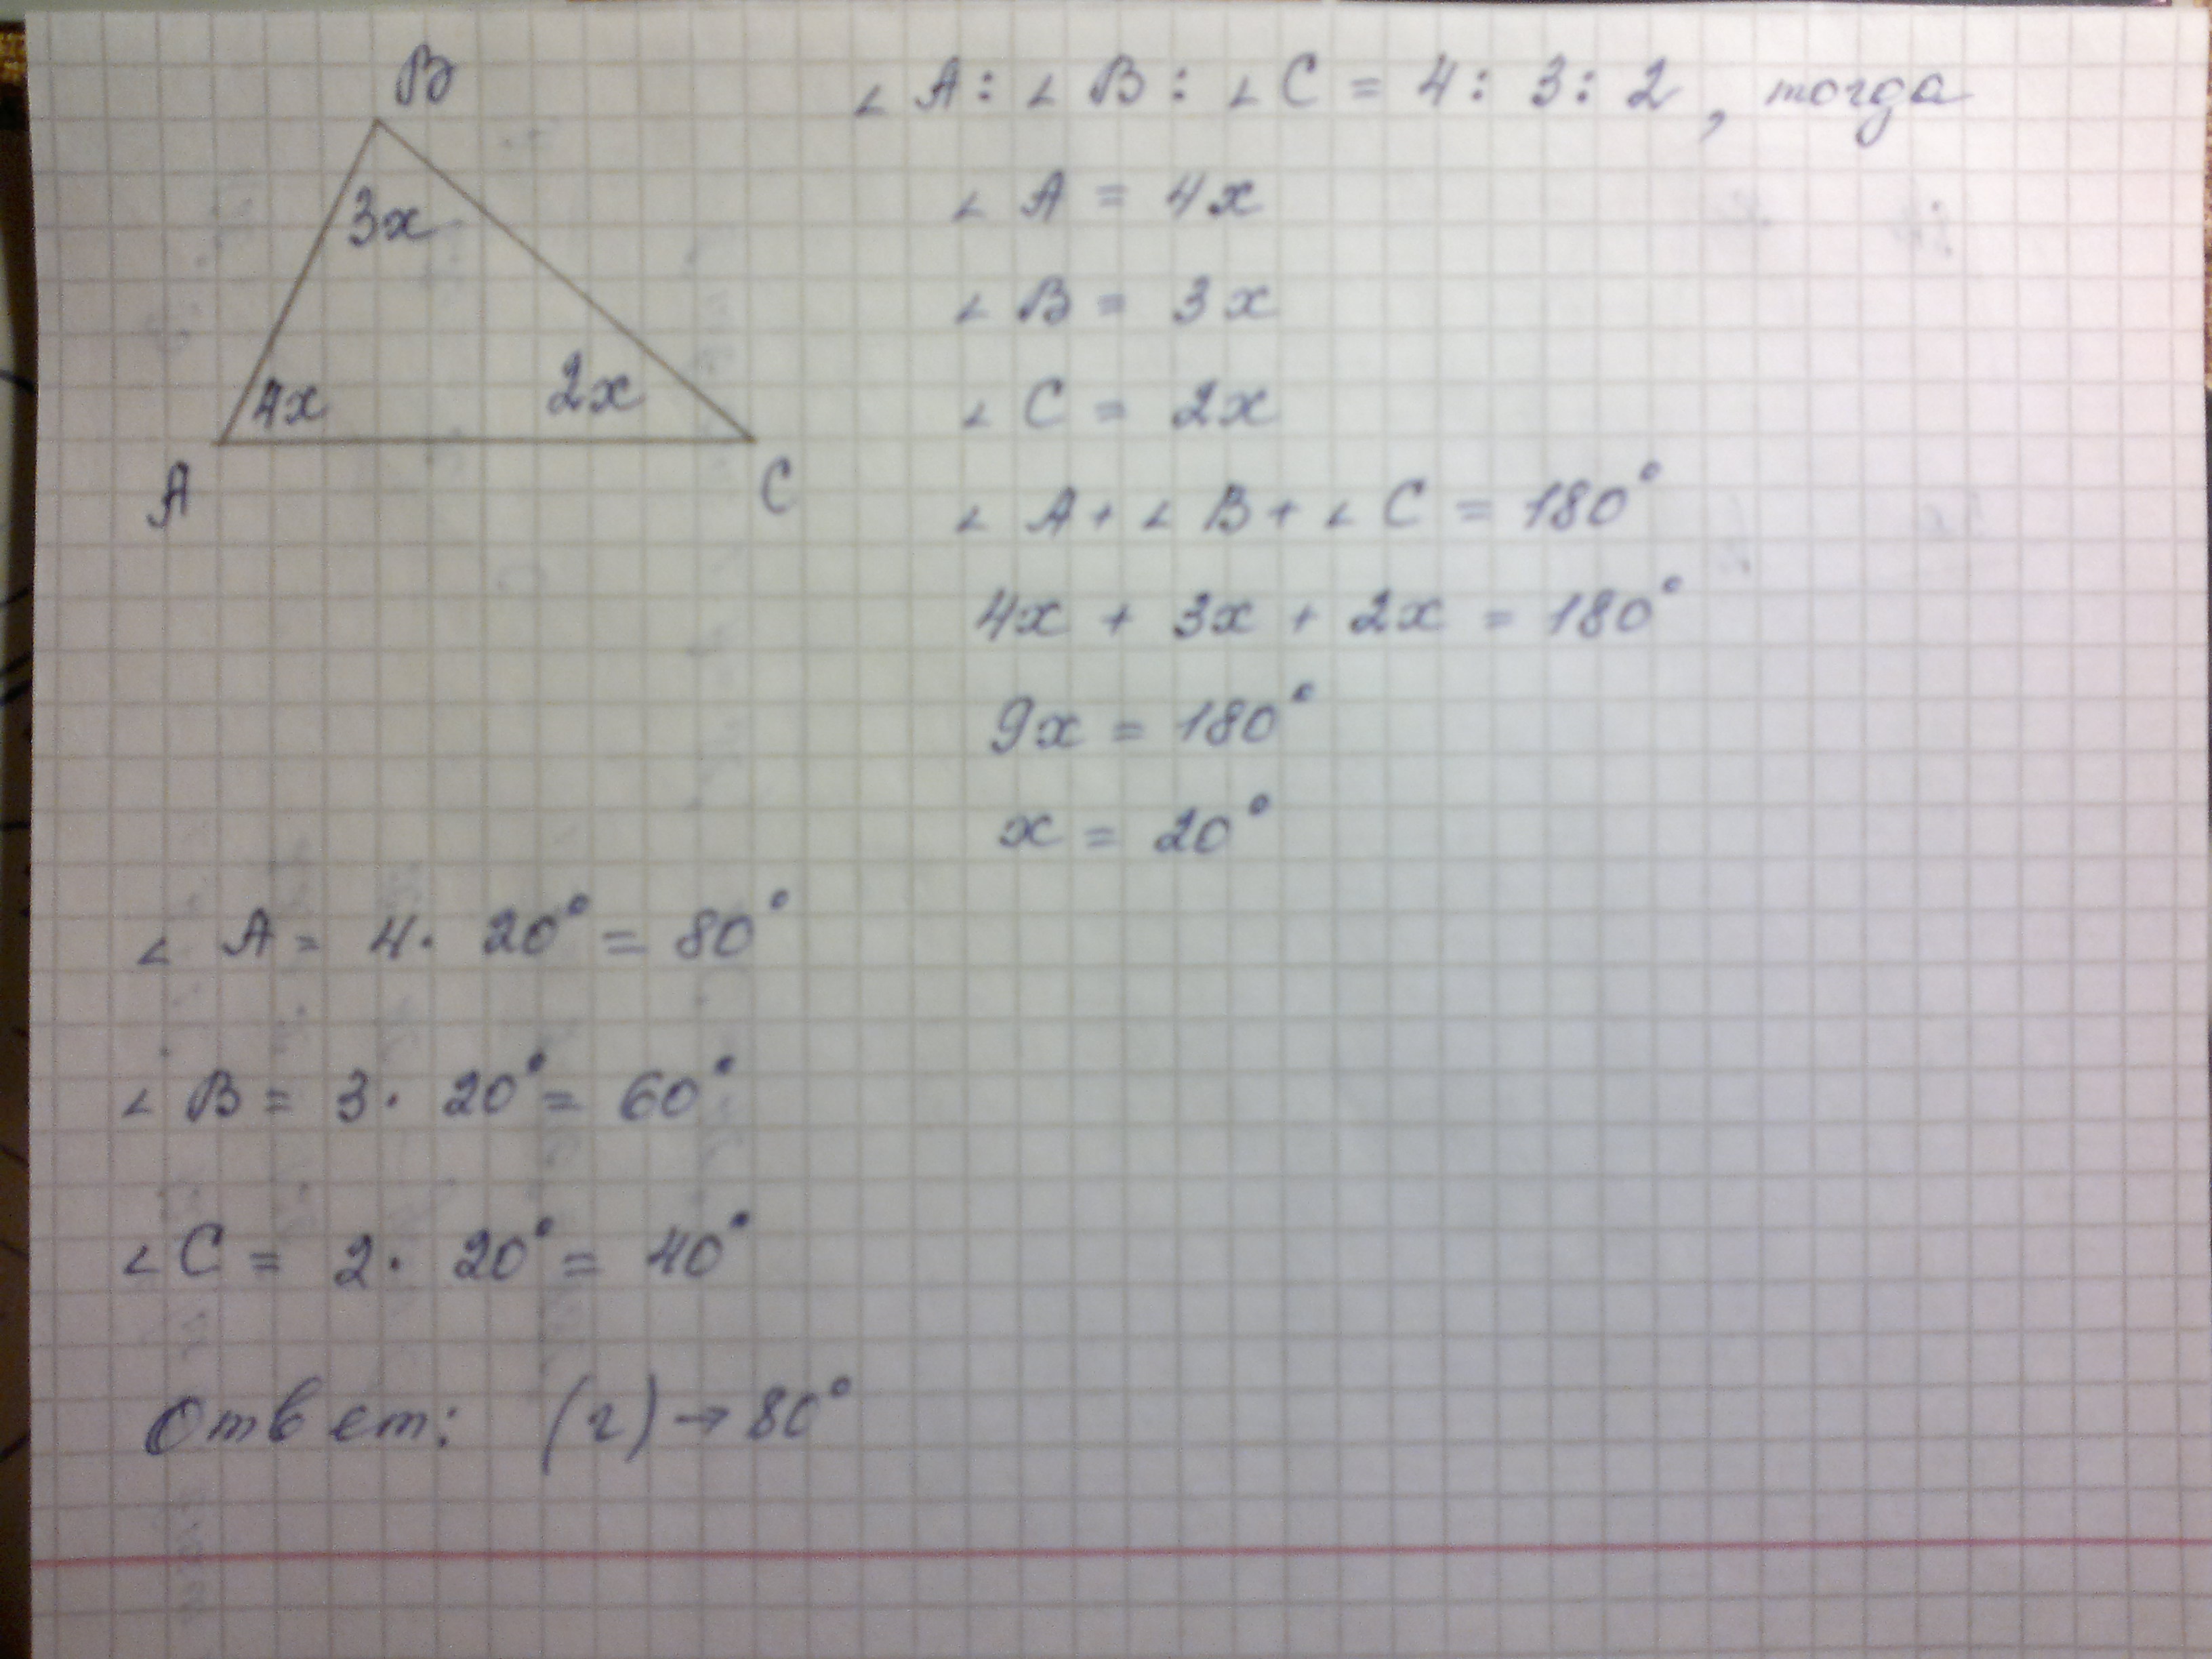 B
3x
4x
2x
A
C
∠ A : ∠ B : ∠ C = 4 : 3 : 2 , тогда
∠ A = 4x
∠ B = 3x
∠ C = 2x
∠ A + ∠ B + ∠ C = 180°
4x + 3x + 2x = 180°
9x = 180°
x = 20°
∠ A = 4 · 20° = 80°
∠ B = 3 · 20° = 60°
∠ C = 2 · 20° = 40°
Ответ: (г) → 80°